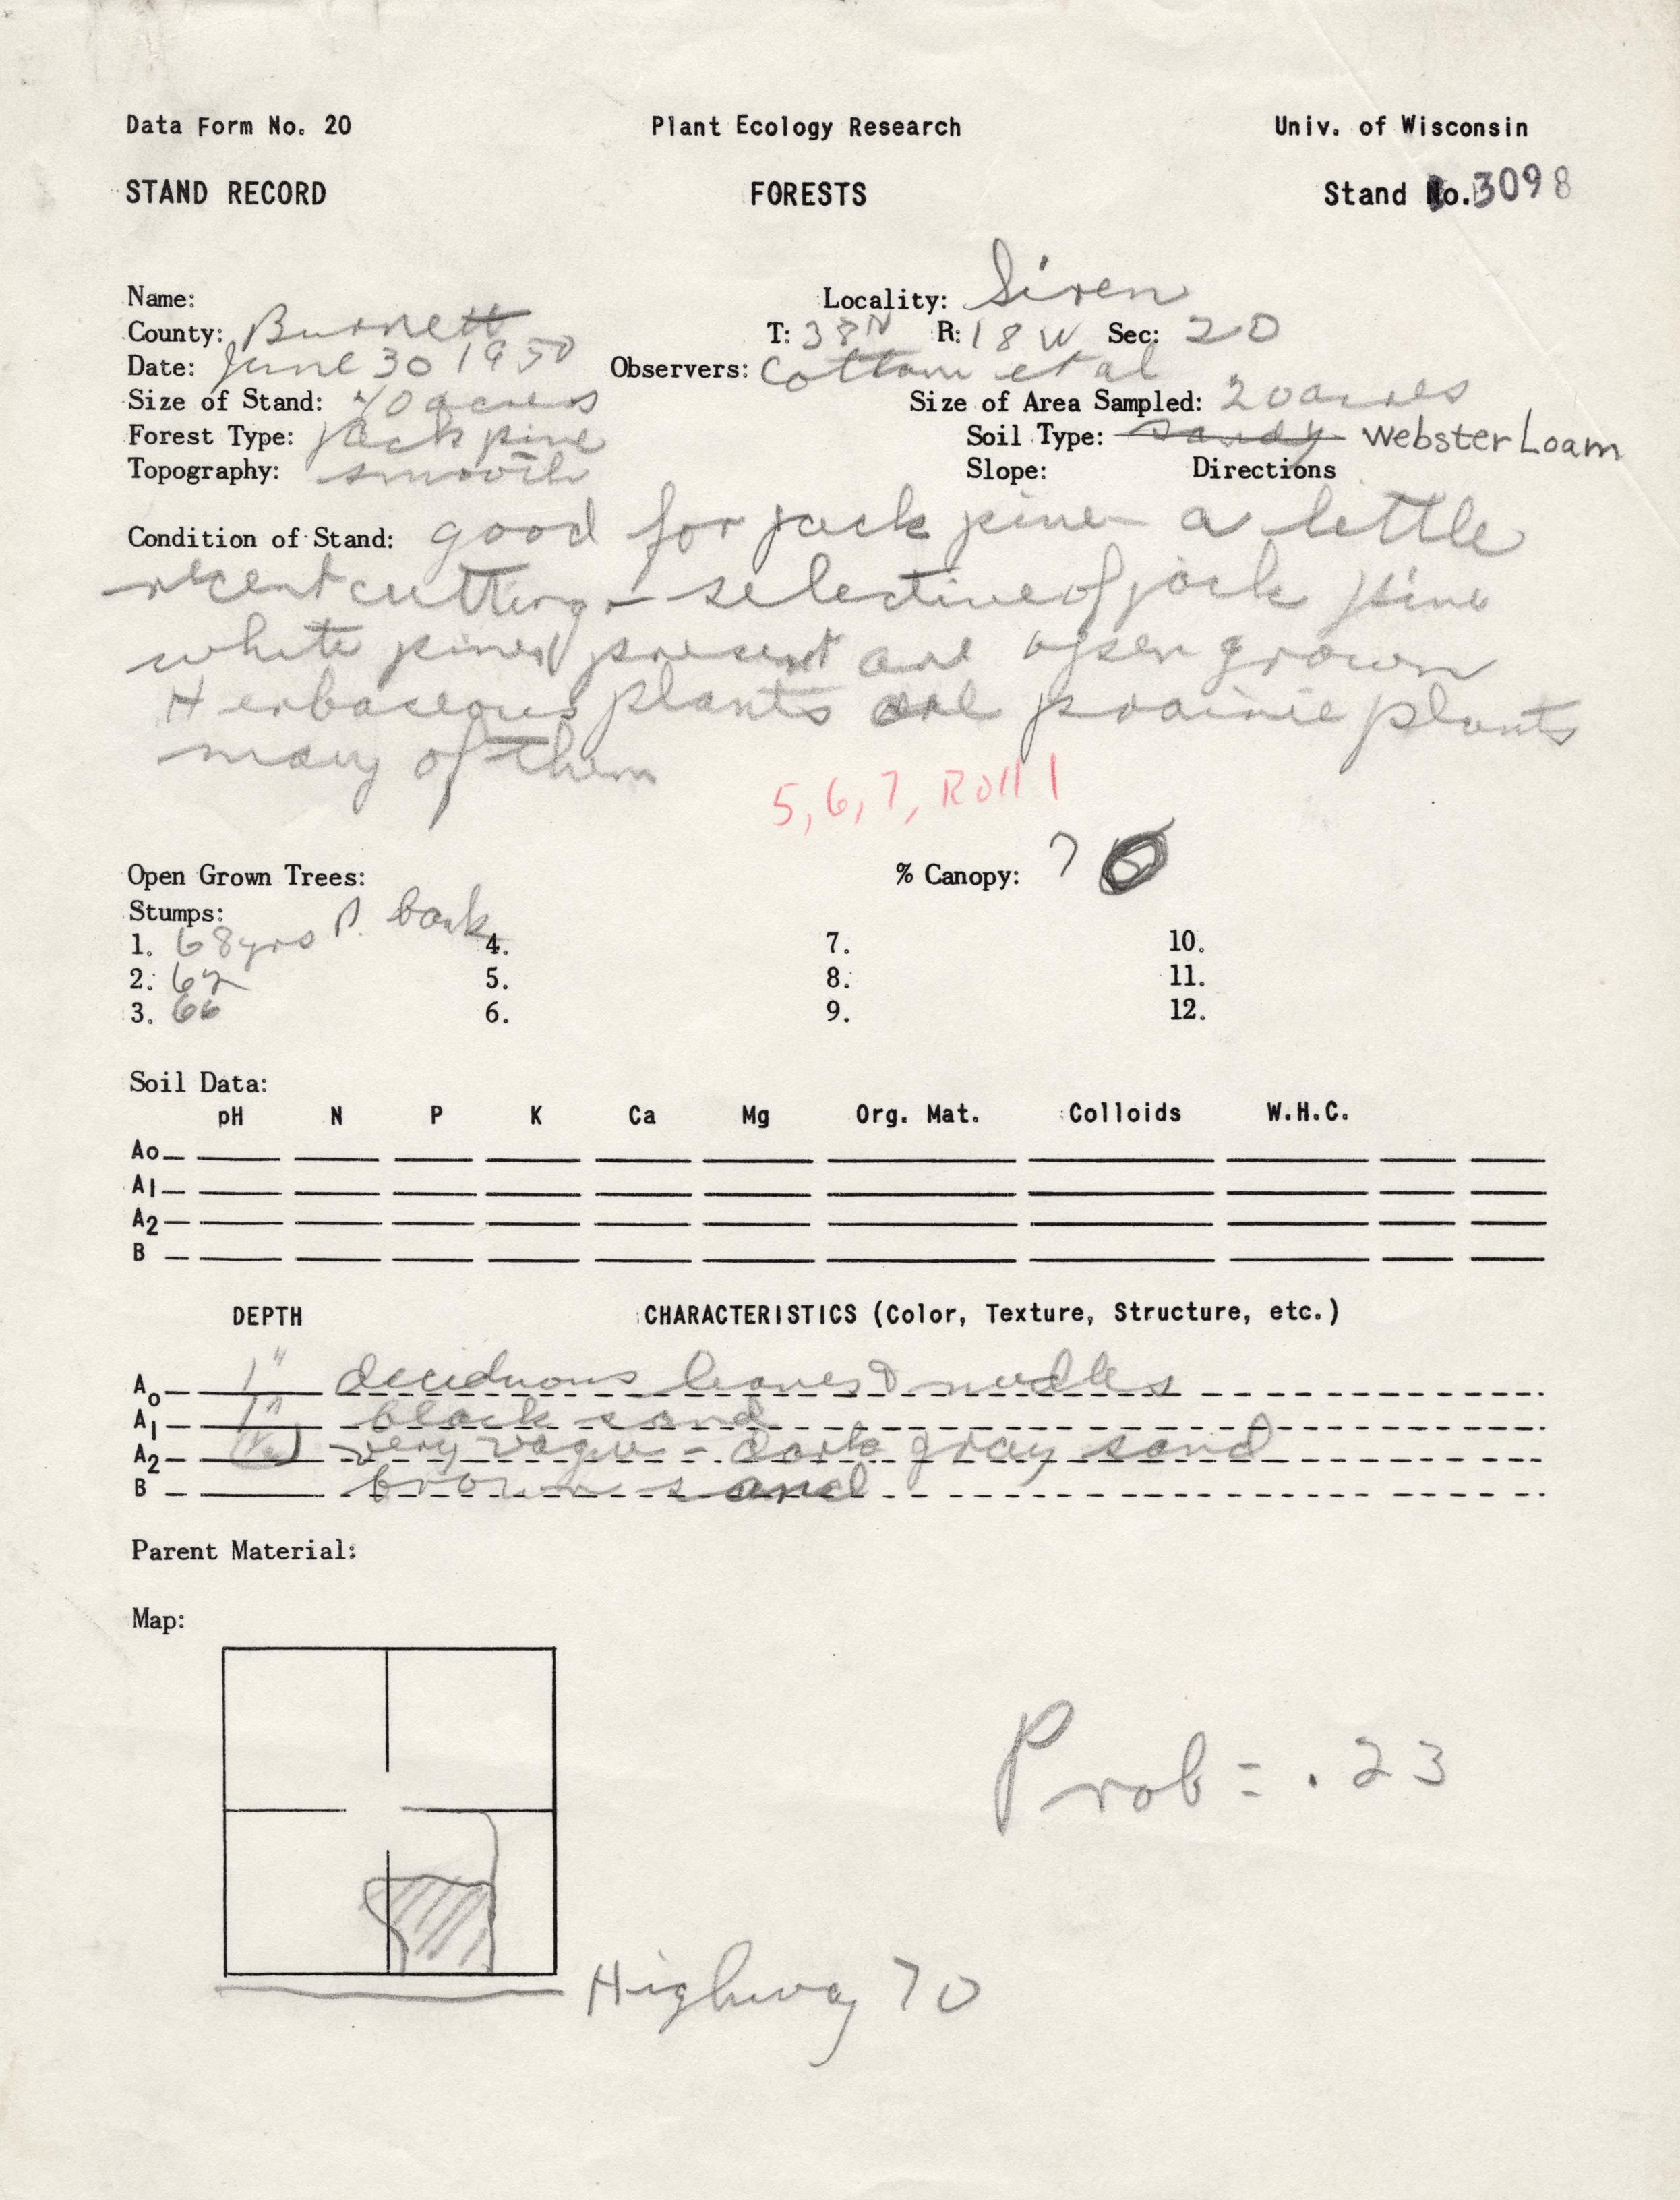 Data Form No. 20 Plant Ecology Research Univ. of Wisconsin
STAND RECORD FORESTS Stand No. 3098
Name: Locality: Siren
County: Burnett T: 38N R: 18W Sec: 20
Date: June 30 1950 Observers: Cottam et al
Size of Stand: 40 acres Size of Area Sampled: 20 acres
Forest Type: Jack pine Soil Type: sandy Webster Loam
Topography: smooth Slope: Directions
Condition of Stand: good for jack pine - a little
recent cutting - selective of jack pine
white pines present are open grown
Herbaceous plants are prairie plants
many of them
5, 6, 7, Roll 1
Open Grown Trees: % Canopy: 7
Stumps: P. bank
1. 68 yrs 4. 7. 10.
2. 67 5. 8. 11.
3. 66 6. 9. 12.
Soil Data:
pH N P K Ca Mg Org. Mat. Colloids W.H.C.
Ao
A1
A2
B
DEPTH CHARACTERISTICS (Color, Texture, Structure, etc.)
Ao 1" deciduous leaves & needles
A1 1" black sand
A2 very vague - dark gray sand
B brown sand
Parent Material:
Map:
Prob = .23
Highway 70